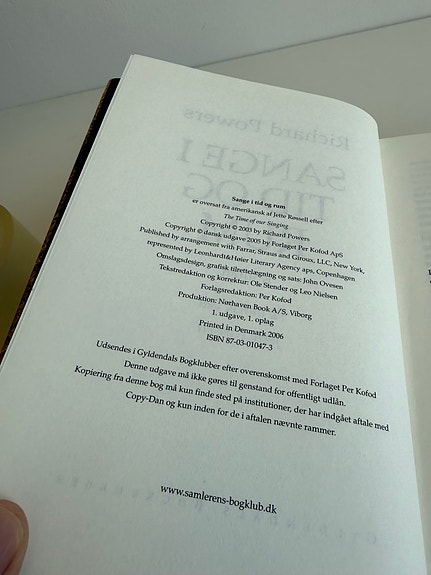 Sange i tid og rum
er oversat fra amerikansk af Jette Røssell efter
The Time of our Singing
Copyright © 2003 by Richard Powers
Copyright © dansk udgave 2005 by Forlaget Per Kofod ApS
Published by arrangement with Farrar, Straus and Giroux, LLC, New York,
represented by Leonhardt&Høier Literary Agency aps, Copenhagen
Omslagsdesign, grafisk tilrettelægning og sats: John Ovesen
Tekstredaktion og korrektur: Ole Stender og Leo Nielsen
Forlagsredaktion: Per Kofod
Produktion: Nørhaven Book A/S, Viborg
1. udgave, 1. oplag
Printed in Denmark 2006
ISBN 87-03-01047-3
Udsendes i Gyldendals Bogklubber efter overenskomst med Forlaget Per Kofod
Denne udgave må ikke gøres til genstand for offentligt udlån.
Kopiering fra denne bog må kun finde sted på institutioner, der har indgået aftale med
Copy-Dan og kun inden for de i aftalen nævnte rammer.
www.samlerens-bogklub.dk